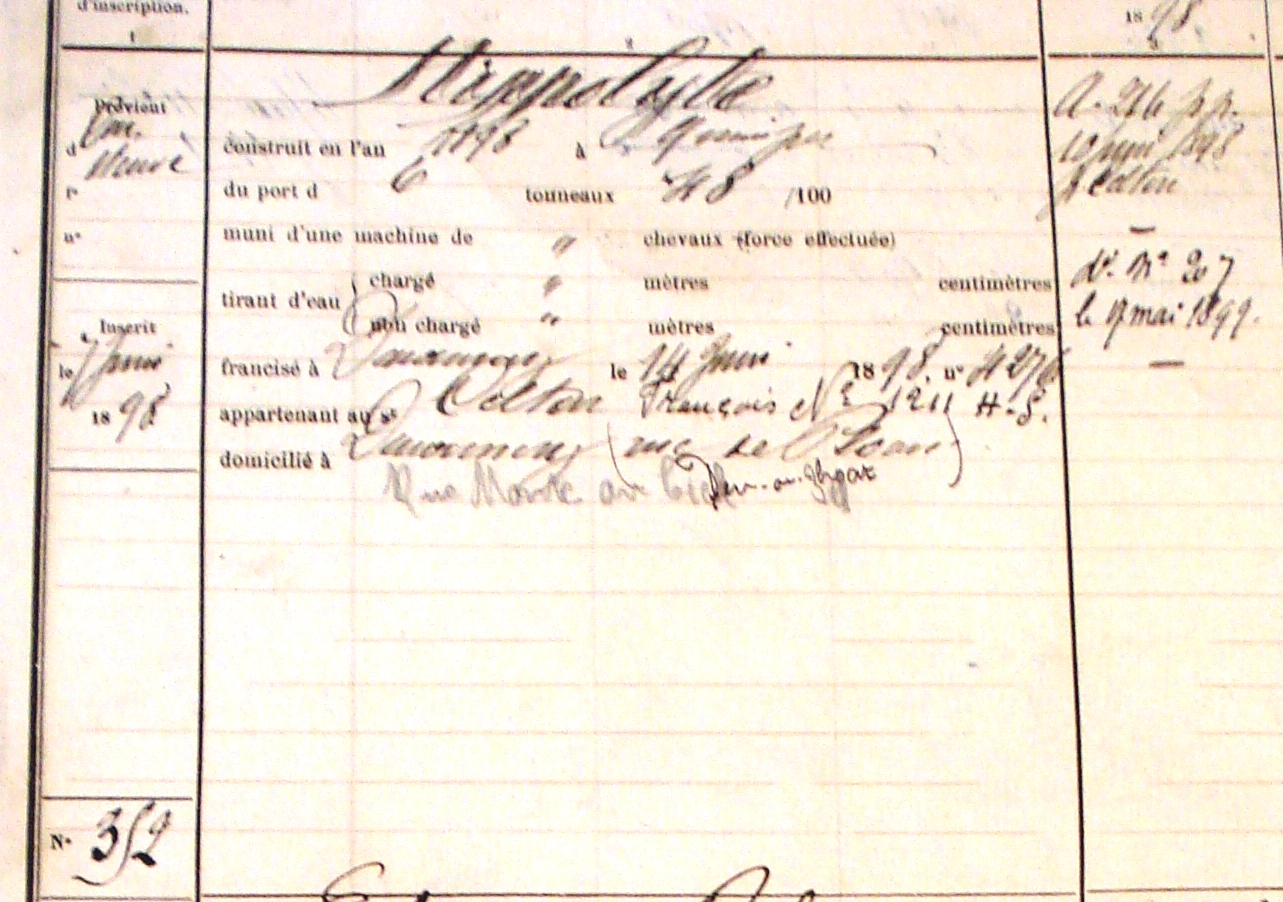 d'inscription.
1
2
18 98
3
Provient
d
Neuve
r.
n°
Inscrit
le Juin
18 98
N° 352
Hippolyte
construit en l'an 1898 à Quimper
du port d 6 tonneaux 48 /100
muni d'une machine de " chevaux (force effectuée)
tirant d'eau
chargé " mètres centimètres
non chargé " mètres centimètres
francisé à Douarnenez le 14 Juin 1898. n° 4276
appartenant au sr Colton François N° 1211 H.S.
domicilié à Douarnenez (rue de
Rue Monte au Ciel
10 Juin 1898
Colton
—
d° N° 207
le 9 mai 1899.
—